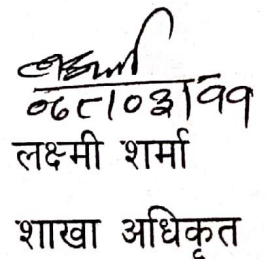 ०६८।०३।११
लक्ष्मी शर्मा
शाखा अधिकृत